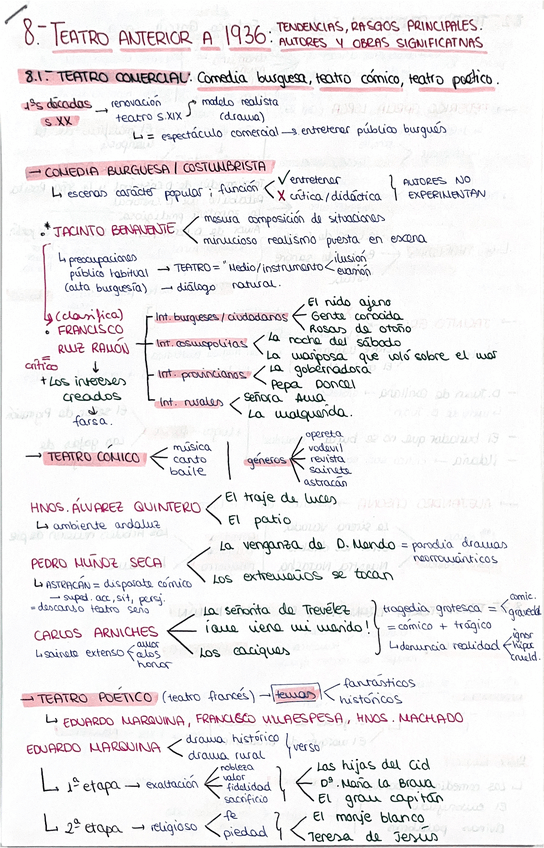 8.- TEATRO ANTERIOR A 1936: TENDENCIAS, RASGOS PRINCIPALES.
AUTORES Y OBRAS SIGNIFICATIVAS
8.1.- TEATRO COMERCIAL: Comedia burguesa, teatro cómico, teatro poético.
1ªs décadas s.XX → renovación teatro s.XIX → modelo realista (drama)
↳ = espectáculo comercial → entretener público burgués
→ COMEDIA BURGUESA / COSTUMBRISTA
↳ escenas carácter popular / función < √ entretener
X crítica/didáctica } AUTORES NO EXPERIMENTAN
• JACINTO BENAVENTE < mesura composición de situaciones
minucioso realismo puesta en escena
↳ preocupaciones público habitual (alta burguesía) → TEATRO = "Medio/instrumento < ilusión
evasión
→ diálogo natural.
↳ (clasifica)
• FRANCISCO RUIZ RAMÓN
= crítico
Int. burgueses / ciudadanos < El nido ajeno
Gente conocida
Rosas de otoño
Int. cosmopolitas < La noche del sábado
La mariposa que voló sobre el mar
Int. provincianos < La gobernadora
Pepa Doncel
Int. rurales < Señora Ama
La malquerida.
+ Los intereses creados
↓
farsa.
→ TEATRO CÓMICO < música
canto
baile
géneros < opereta
vodevil
revista
sainete
astracán
HNOS. ÁLVAREZ QUINTERO < El traje de luces
El patio
↳ ambiente andaluz
PEDRO MUÑOZ SECA < La venganza de D. Mendo = parodia dramas neorrománticos
Los extremeños se tocan
↳ ASTRACÁN = disparate cómico
→ suped. acc, sit, persj.
= descanso teatro serio
CARLOS ARNICHES < La señorita de Trevélez
¡que viene mi marido!
Los caciques
↳ sainete extenso < amor
celos
honor
tragedia grotesca = < comic.
gravedad
= cómico + trágico
↳ denuncia realidad < ignor
hipoc
crueld.
→ TEATRO POÉTICO (teatro francés) → temas < fantásticos
históricos
↳ EDUARDO MARQUINA, FRANCISCO VILLAESPESA, HNOS. MACHADO
EDUARDO MARQUINA < drama histórico
drama rural } verso
↳ 1ª etapa → exaltación < nobleza
valor
fidelidad
sacrificio
Las hijas del Cid
Dª. María la Brava
El gran capitán
↳ 2ª etapa → religioso < fe
piedad
El monje blanco
Teresa de Jesús